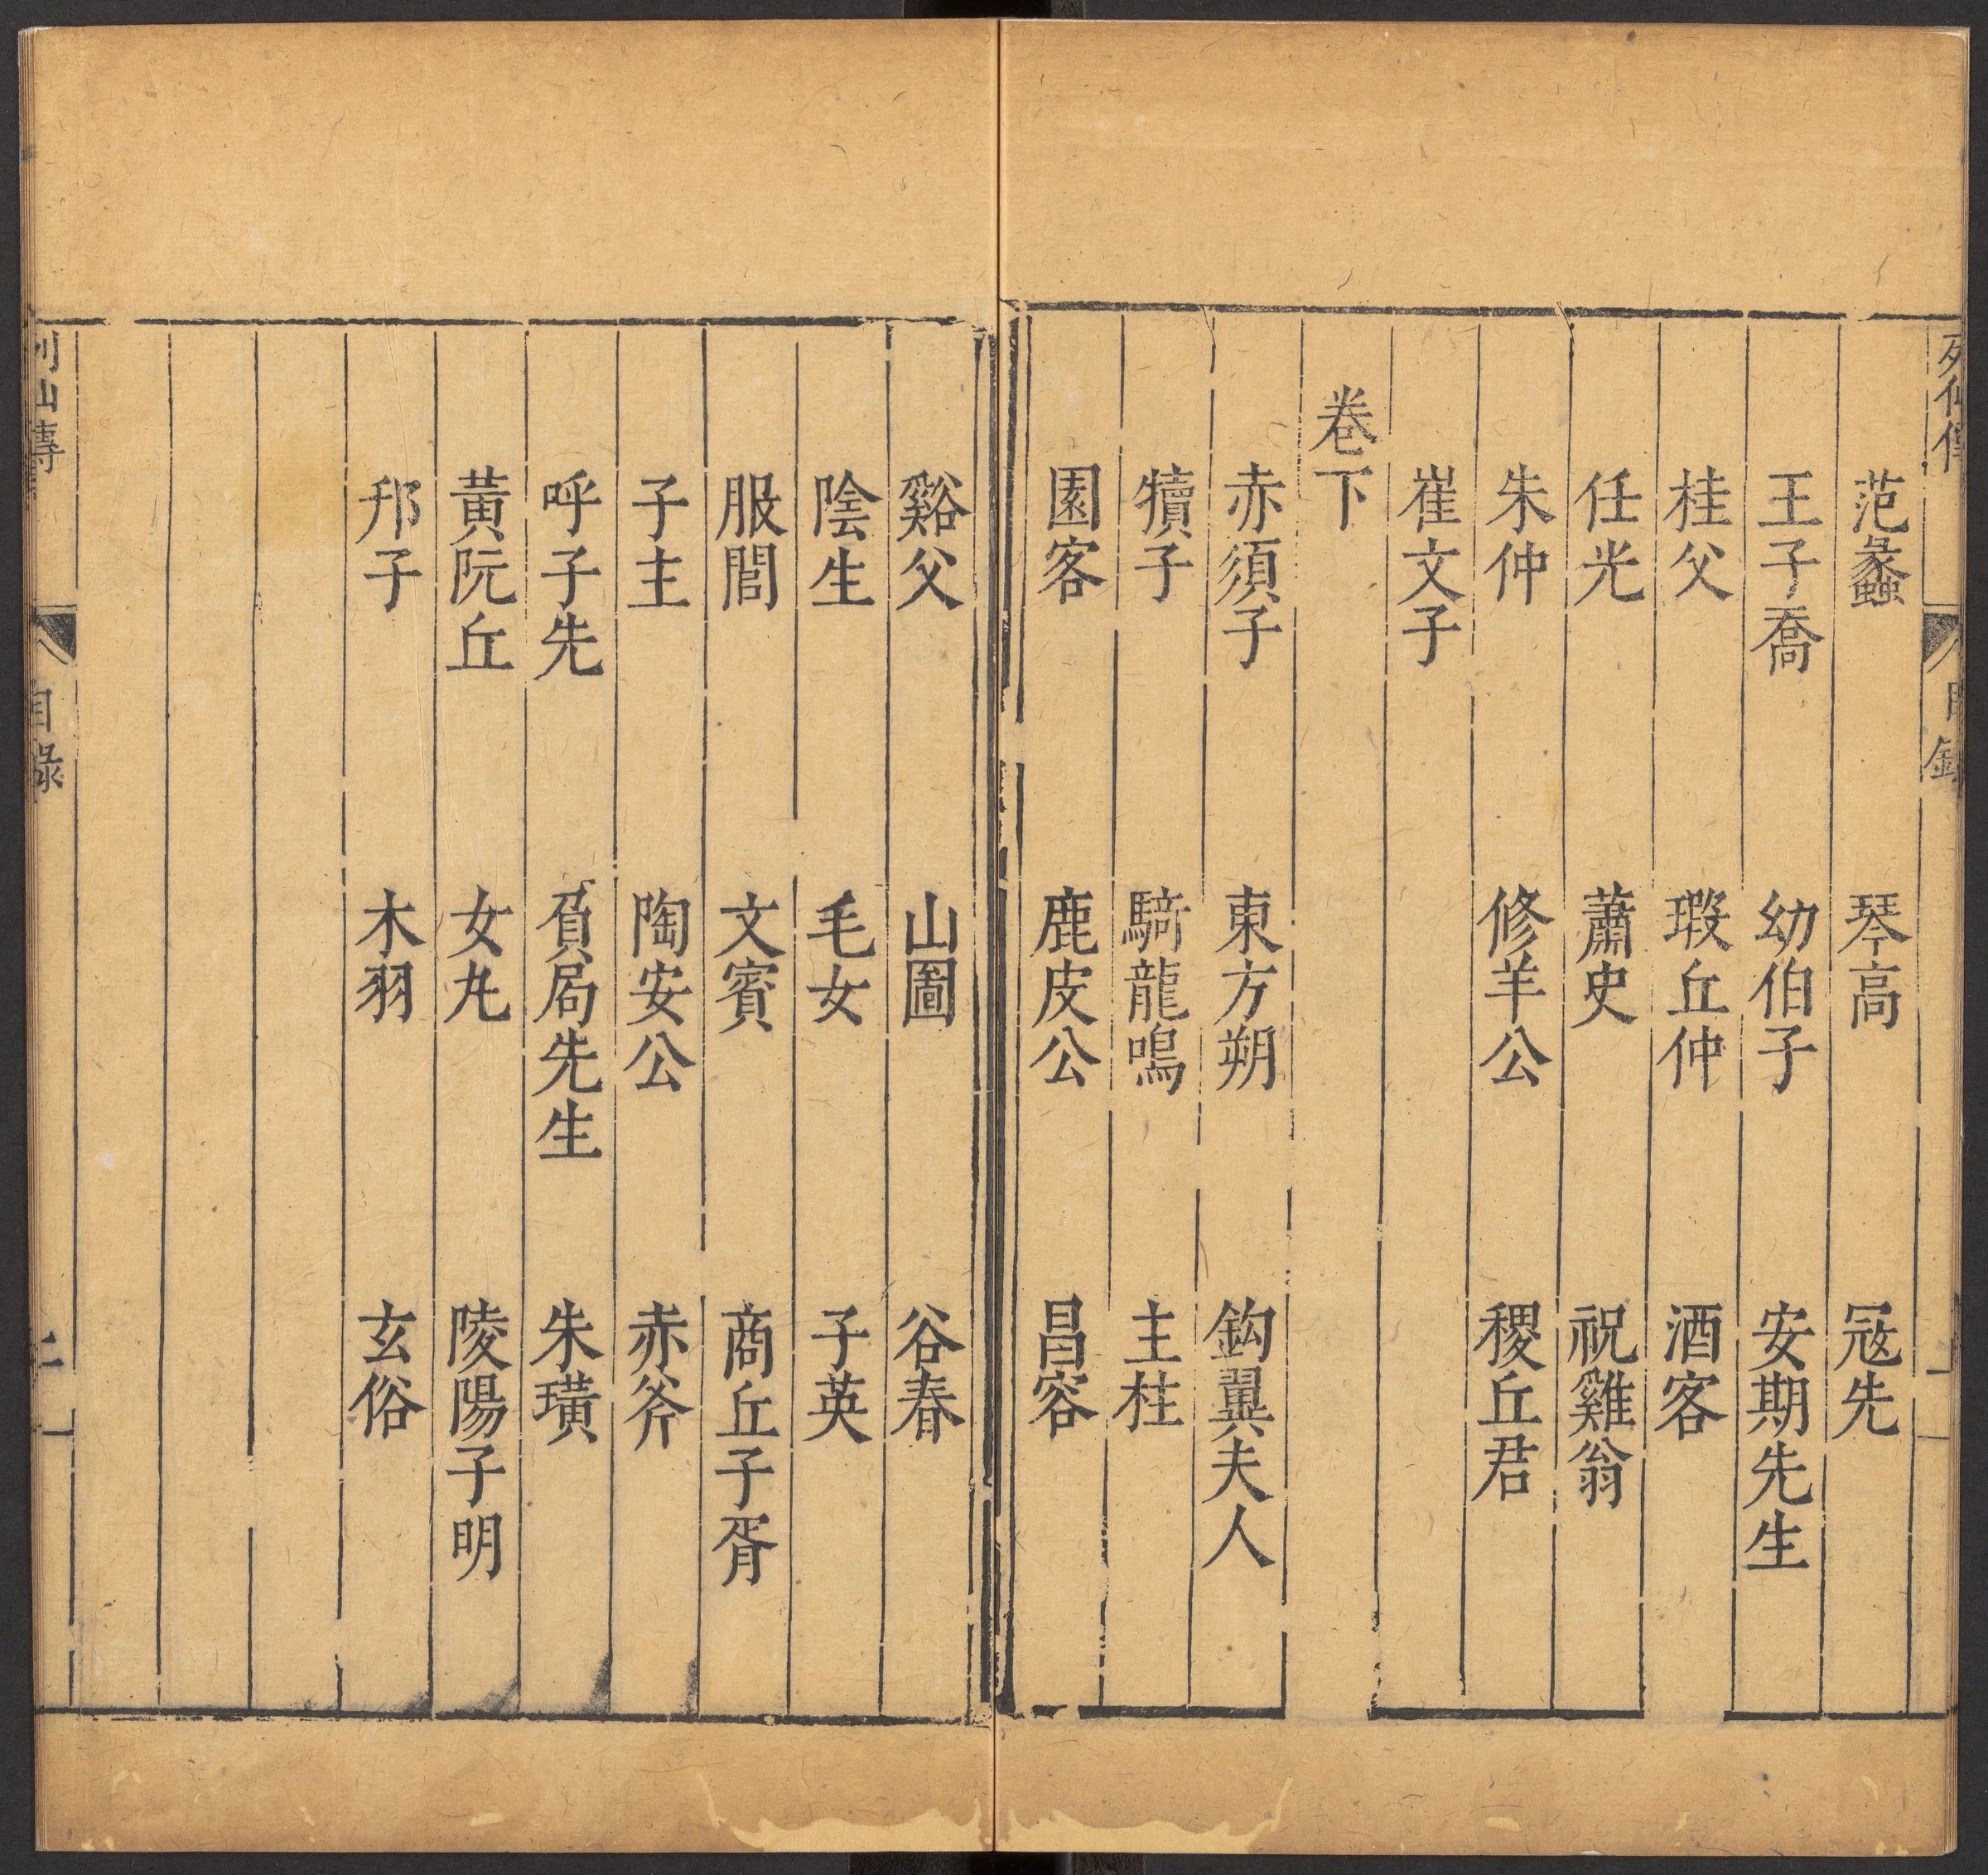 列仙傳 目錄
范蠡 琴高 冦先
王子喬 幼伯子 安期先生
桂父 瑕丘仲 酒客
任光 蕭史 祝雞翁
朱仲 修羊公 稷丘君
崔文子
卷下
赤須子 東方朔 鈎翼夫人
犢子 騎龍鳴 主柱
園客 鹿皮公 昌容
谿父 山圖 谷春
陰生 毛女 子英
服閭 文賓 商丘子胥
子主 陶安公 赤斧
呼子先 負局先生 朱璜
黃阮丘 女丸 陵陽子明
邘子 木羽 玄俗
列仙傳 目錄 二